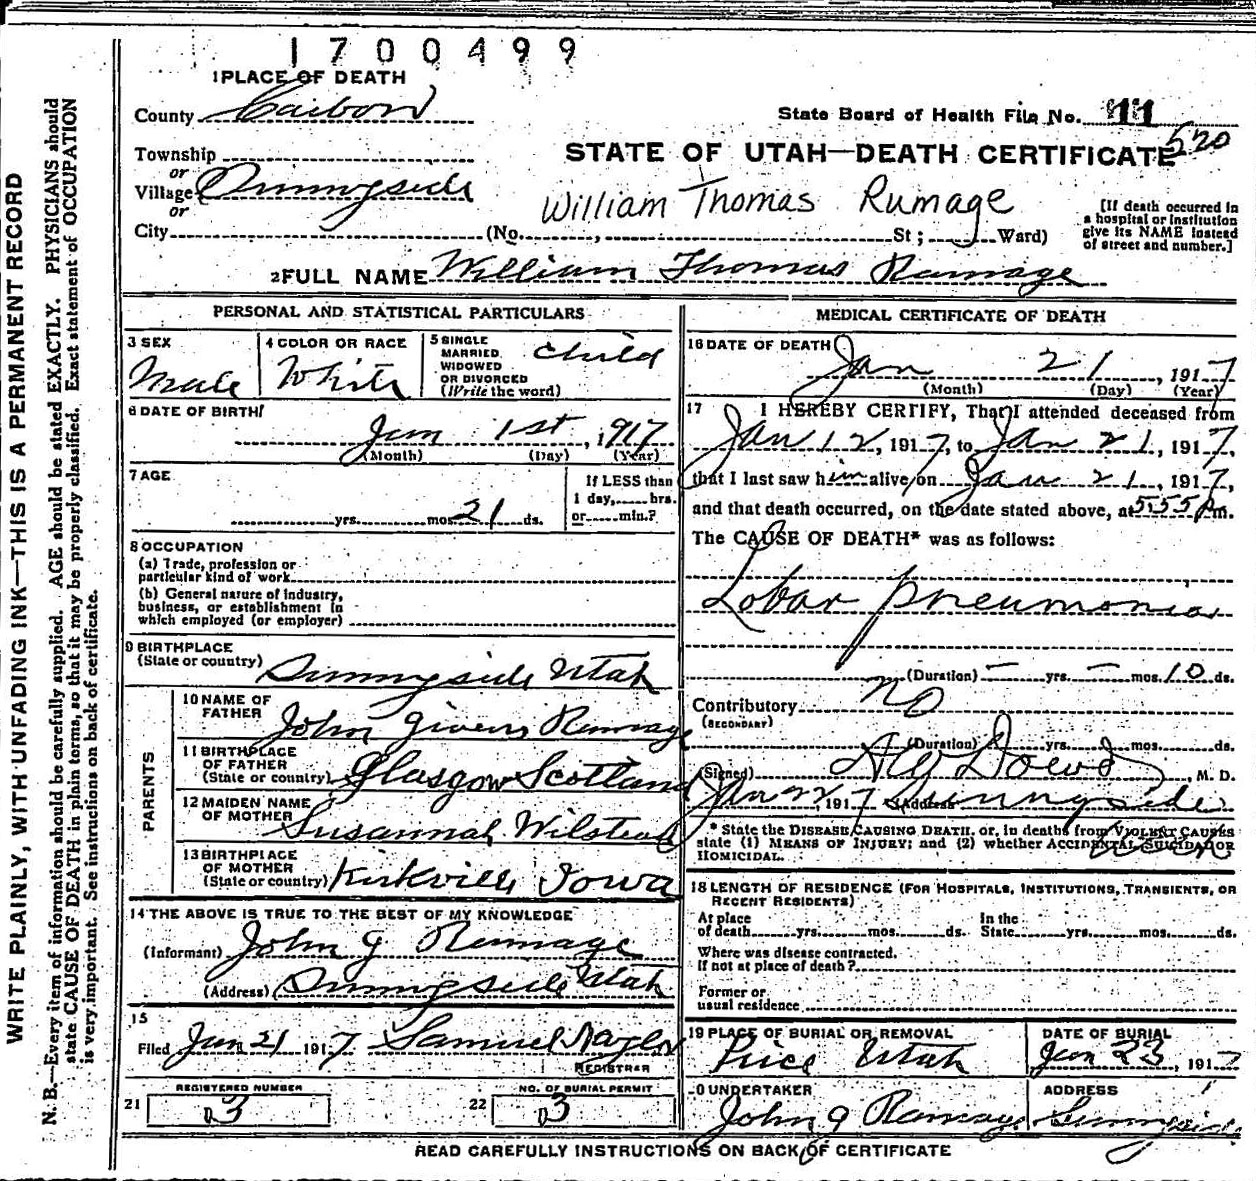 1700499
1 PLACE OF DEATH
County Carbon
State Board of Health File No. 11
520
STATE OF UTAH—DEATH CERTIFICATE
Township
or
Village Sunnyside
or
City (No. , St ; Ward)
William Thomas Rumage
[If death occurred in
a hospital or institution
give its NAME instead
of street and number.]
2 FULL NAME William Thomas Ramage
PERSONAL AND STATISTICAL PARTICULARS
3 SEX
Male
4 COLOR OR RACE
White
5 SINGLE
MARRIED,
WIDOWED
OR DIVORCED
(Write the word)
Child
6 DATE OF BIRTH
Jan 1st, 1917
(Month) (Day) (Year)
7 AGE
yrs. mos. 21 ds.
If LESS than
1 day, hrs.
or min.?
8 OCCUPATION
(a) Trade, profession or
particular kind of work
(b) General nature of industry,
business, or establishment in
which employed (or employer)
9 BIRTHPLACE
(State or country) Sunnyside Utah
PARENTS
10 NAME OF
FATHER John Givens Ramage
11 BIRTHPLACE
OF FATHER
(State or country) Glasgow Scotland
12 MAIDEN NAME
OF MOTHER Susannah Wilstead
13 BIRTHPLACE
OF MOTHER
(State or country) Kirkville Iowa
14 THE ABOVE IS TRUE TO THE BEST OF MY KNOWLEDGE
(Informant) John G Ramage
(Address) Sunnyside Utah
15
Filed Jan 21 1917 Samuel Naylor
REGISTRAR
REGISTERED NUMBER
21 3
NO. OF BURIAL PERMIT
22 3
MEDICAL CERTIFICATE OF DEATH
16 DATE OF DEATH
Jan 21, 1917
(Month) (Day) (Year)
17 I HEREBY CERTIFY, That I attended deceased from
Jan 12, 1917, to Jan 21, 1917,
that I last saw him alive on Jan 21, 1917,
and that death occurred, on the date stated above, at 5:55 p.m.
The CAUSE OF DEATH* was as follows:
Lobar pneumonia
(Duration) — yrs. — mos. 10 ds.
Contributory no
(SECONDARY)
(Duration) yrs. mos. ds.
(Signed) A W Dowd, M. D.
Jan 22, 1917 (Address) Sunnyside
* State the DISEASE CAUSING DEATH, or, in deaths from VIOLENT CAUSES
state (1) MEANS OF INJURY; and (2) whether ACCIDENTAL, SUICIDAL OR
HOMICIDAL.
18 LENGTH OF RESIDENCE (FOR HOSPITALS, INSTITUTIONS, TRANSIENTS, OR
RECENT RESIDENTS)
At place
of death yrs. mos. ds.
In the
State yrs. mos. ds.
Where was disease contracted,
If not at place of death?
Former or
usual residence
19 PLACE OF BURIAL OR REMOVAL
Price Utah
DATE OF BURIAL
Jan 23, 1917
0 UNDERTAKER
John G Ramage
ADDRESS
Sunnyside
READ CAREFULLY INSTRUCTIONS ON BACK OF CERTIFICATE
WRITE PLAINLY, WITH UNFADING INK—THIS IS A PERMANENT RECORD
N. B.—Every item of information should be carefully supplied. AGE should be stated EXACTLY. PHYSICIANS should
state CAUSE OF DEATH in plain terms, so that it may be properly classified. Exact statement of OCCUPATION
is very important. See instructions on back of certificate.